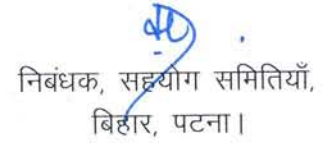 निबंधक, सहयोग समितियाँ,
बिहार, पटना।